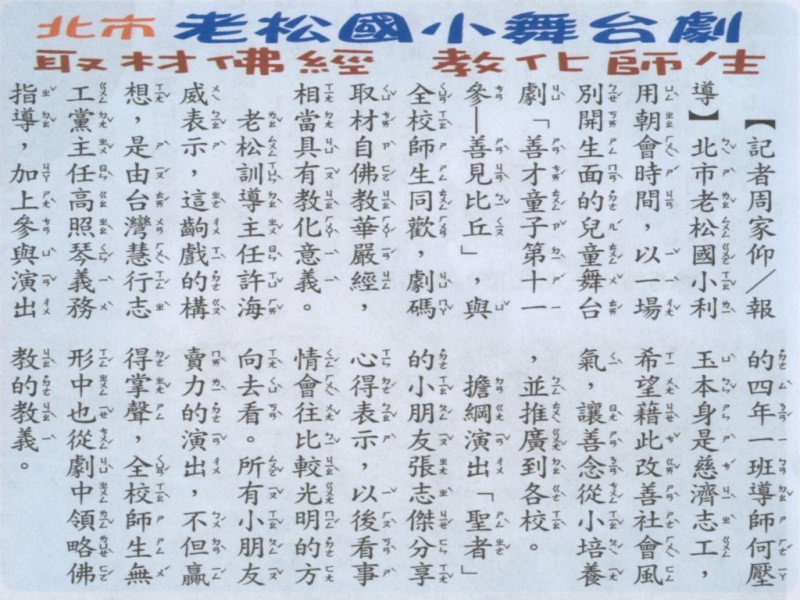 北市 老松國小舞台劇
取材佛經 教化師生
【記者周家仰／報
導】北市老松國小利
用朝會時間，以一場
別開生面的兒童舞台
劇「善才童子第十一
參—善見比丘」與
全校師生同歡，劇碼
取材自佛教華嚴經，
相當具有教化意義。
老松訓導主任許海
威表示，這齣戲的構
想，是由台灣慧行志
工黨主任高照琴義務
指導，加上參與演出
的四年一班導師何壓
玉本身是慈濟志工，
希望藉此改善社會風
氣，讓善念從小培養
，並推廣到各校。
擔綱演出「聖者」
的小朋友張志傑分享
心得表示，以後看事
情會往比較光明的方
向去看。所有小朋友
賣力的演出，不但贏
得掌聲，全校師生無
形中也從劇中領略佛
教的教義。